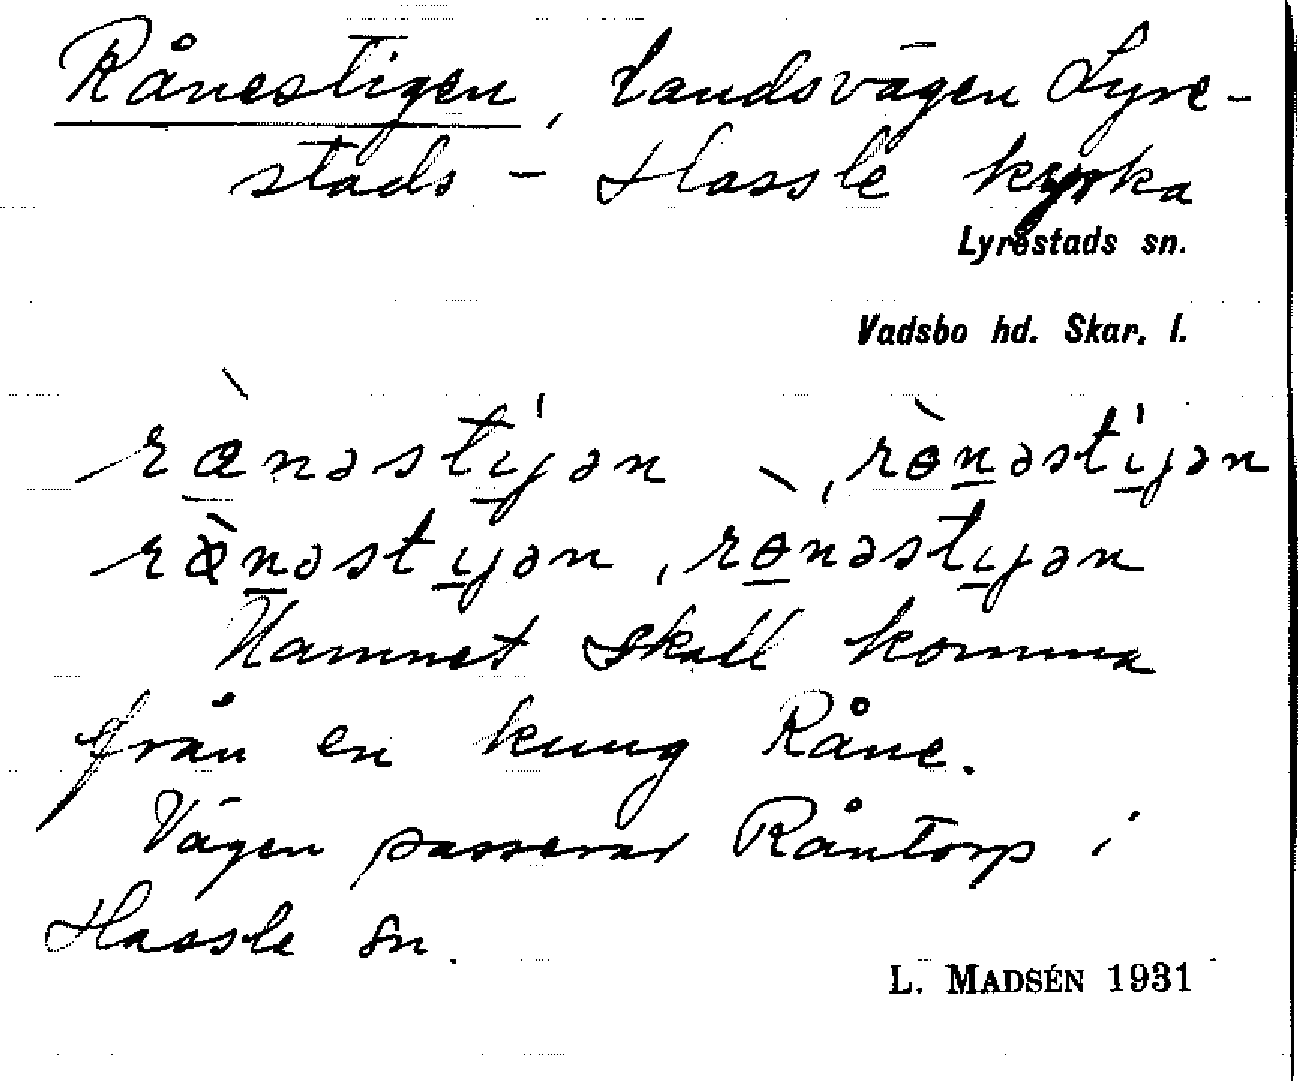 Rånestigen, landsvägen Lyre-
stads - Hassle kyrka
Lyrestads sn.
Vadsbo hd. Skar. l.
rænəstiɡ̯ən, rɵnəstiɡ̯ən
rænəstiɡ̯ən, rɵnəstiɡ̯ən
Namnet skall komma
från en kung Råne.
Vägen passerar Råntorp i
Hassle sn.
L. MADSÉN 1931